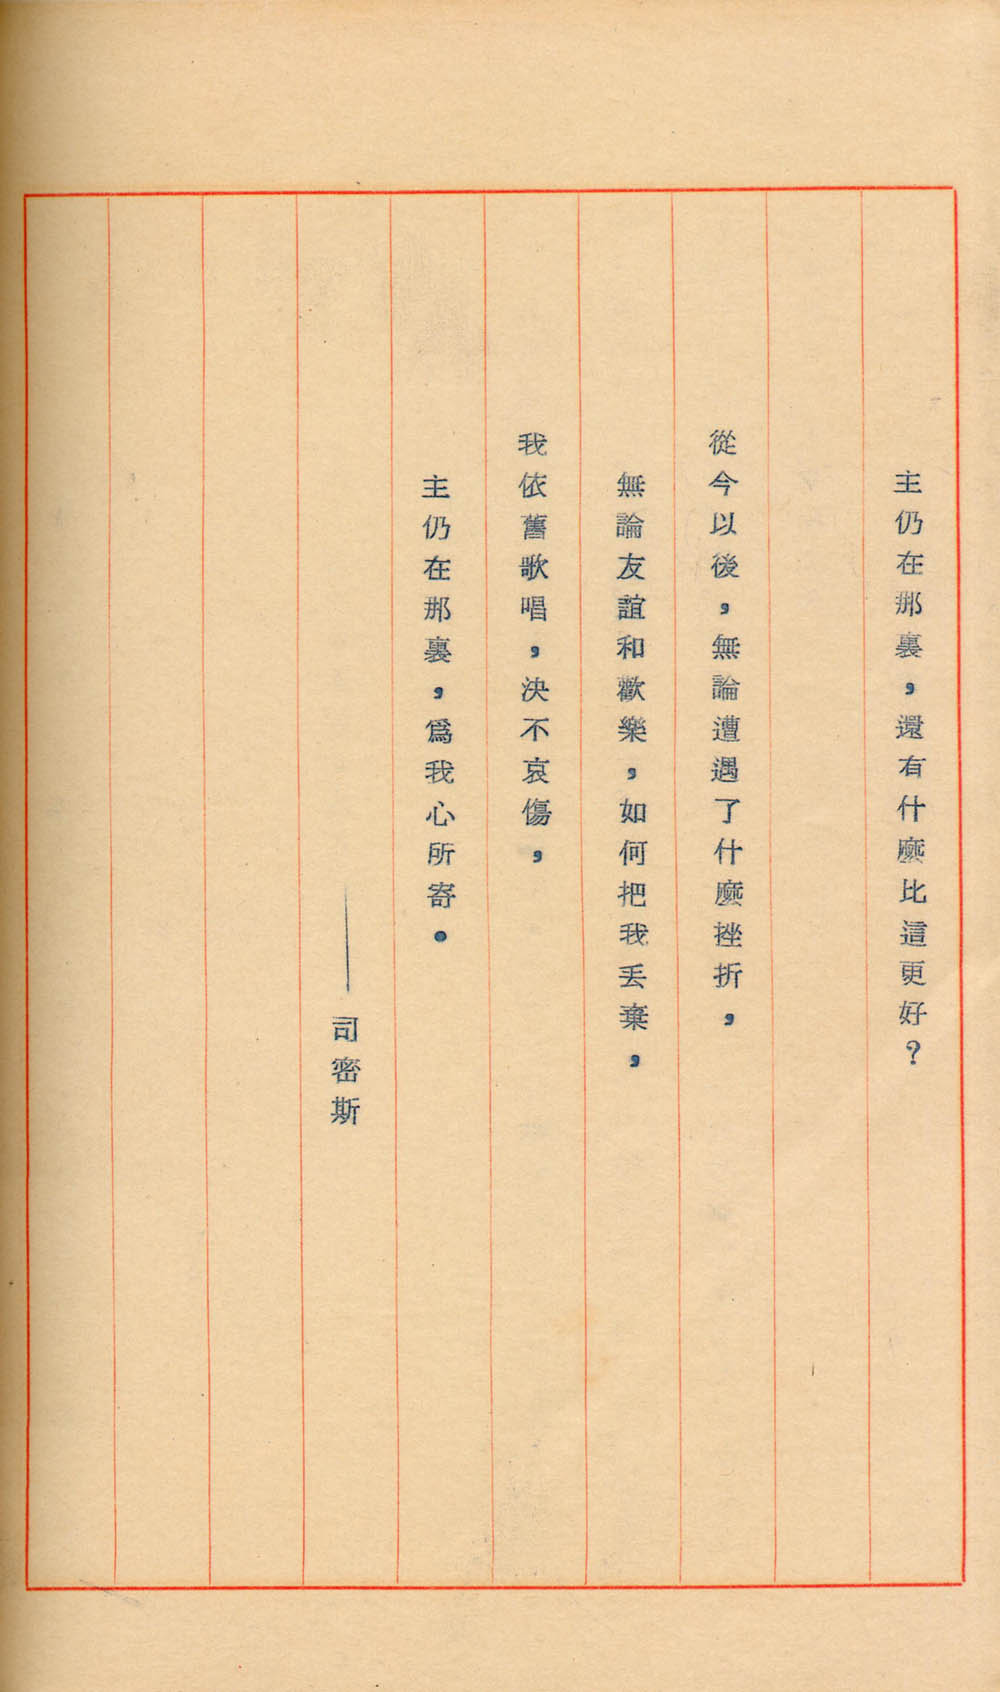 主仍在那裏，還有什麼比這更好？
從今以後，無論遭遇了什麼挫折，
無論友誼和歡樂，如何把我丟棄，
我依舊歌唱，決不哀傷，
主仍在那裏，爲我心所寄。
——司密斯